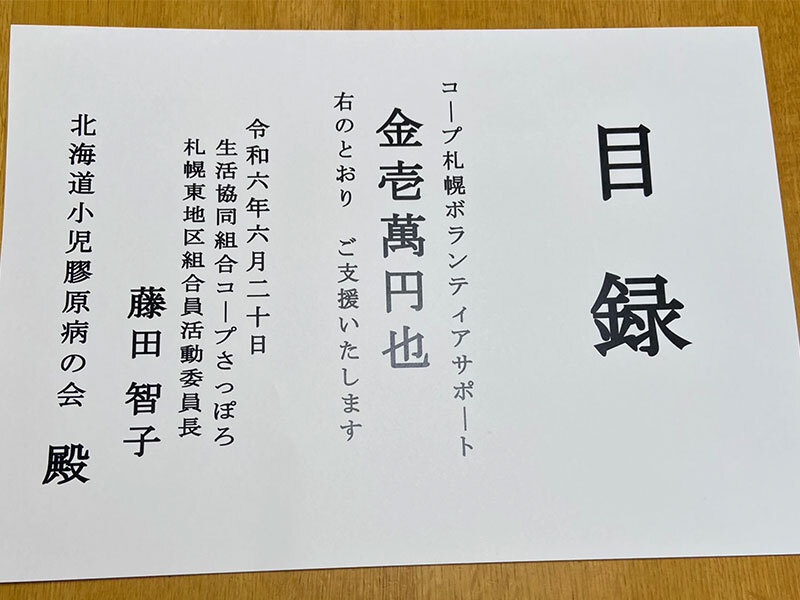 目録
コープ札幌ボランティアサポート
金壱萬円也
右のとおり ご支援いたします
令和六年六月二十日
生活協同組合コープさっぽろ
札幌東地区組合員活動委員長
藤田 智子
北海道小児膠原病の会 殿